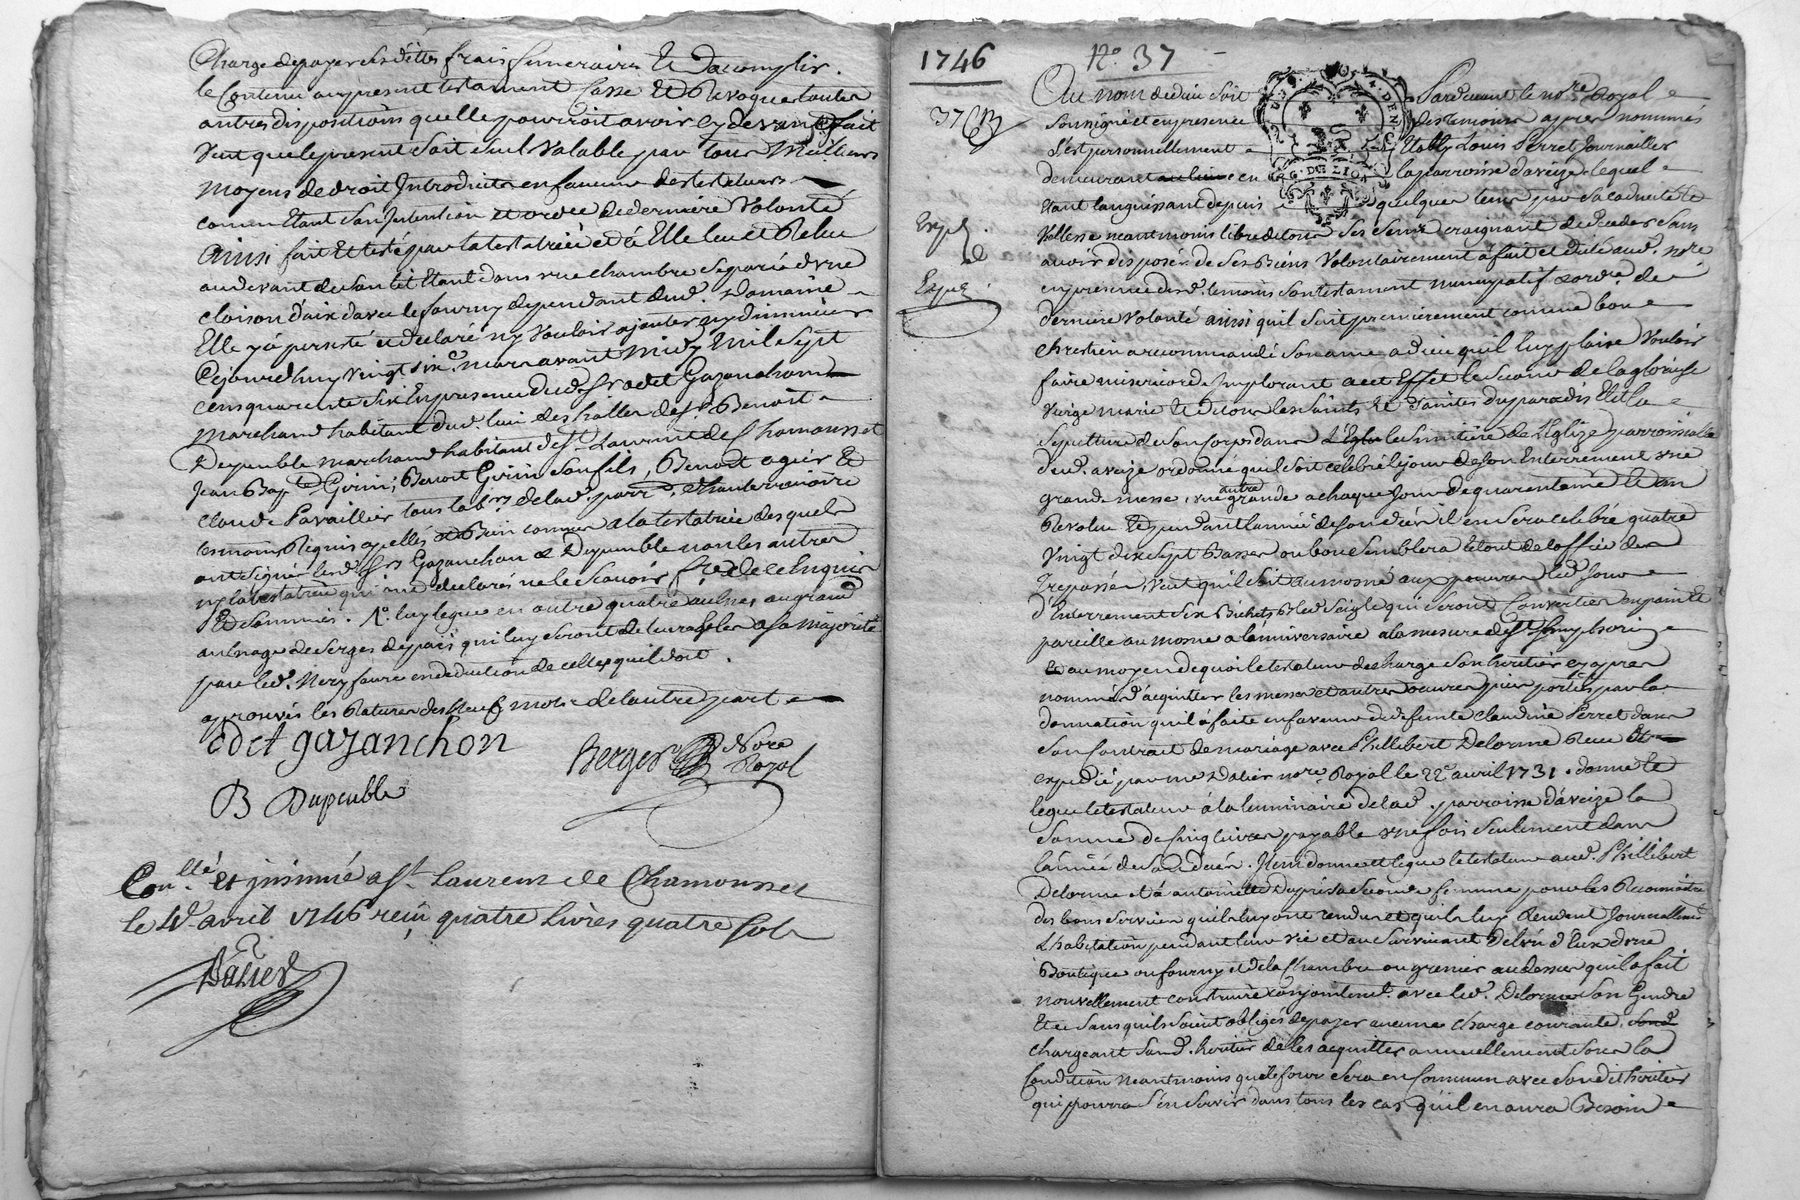 Charge de payer sesdittes frais funeraires et dacomplir
le Contenu au present testament Casse et Revoque toutes
autres dispositions quelle pourroit avoir cy devant fait
Veut que le present soit seul Valable par tous Meilleurs
moyens de droit Introduits en faveur des testateurs
comme Etant son Intention et ordre de derniere Volonté
Ainsi fait Et testé par la testatrice et à Elle leu et Releu
audevant de son lit Etant dans une chambre separée d'une
cloison d'aix davec le fourny dependant dud. Domaine
Elle y a persisté et declaré n'y Vouloir ajouter ny diminuer
Cejourdhuy vingt six.e mars avant midy Mil sept
cens quarente six En presence du d. sr odet Gazanchon
marchand habitant aud. lieu des halles de sr Benoit
Dupeuble marchand habitant de St. Laurent de Chamousset
Jean Bap.te Girin, Benoit Girin son fils, Benoit ogier Et
Claude Pavaillier tous lab.rs de lad. parr.e d'hauterivoire
temoins Requis apellés et Bien connus a la testatrice desquels
ont signé lesd. srs Gazanchon et Dupeuble non les autres
ny la testatrice qui ont declaré ne le Scavoir f.re de ce Enquis
Et Sommés. 1.o luy legue en outre quatre aulnes au grand
aulnage de serges de pais qui luy seront delivrables a sa majorité
par led. Nery faure en deduction de celles quil doit.
aprouvés les Ratures des neuf mots de lautre part
odet gazanchon
Berger Nore Royal
B Dupeuble
Con.llé et insinué a St. Laurent de Chamousset
le 4e. avril 1746 reçu quatre livres quatre sols
Dalier
1746
N.o 37
37
Exp.
Exped.
Au nom de dieu soit Pardevant le no.re Royal
soussigné et en presence des temoins apres nommés
s'est personnellement Etably Louis Perret Journallier
demeurant en la parroisse d'aveize lequel
Etant languissant depuis quelque tems par sa caducité et
Vellesse neantmoins libre de tous ses sens craignant de deceder sans
avoir disposé de ses Biens Volontairement à fait et dicté aud. no.re
en presence desd. temoins son testament nuncupatif et ordre de
derniere Volonté ainsi quil suit premierement comme bon
Chrestien a recommandé son ame a dieu quil luy plaise Vouloir
faire misericorde Implorant a cet Effet le secours de la glorieuse
Vierge marie et de tous les saints et saintes du paradis Elit la
sepulture de son Corps dans le Simitiere de l'Eglize parroissialle
dud. aveize ordonne quil soit celebré le jour de son Enterrement une
grande messe, une autre grande a chaque Jour de quarantaine et an
Revolu Et pendant l'année de son décés il en sera celebré quatre
Vingt dix sept Basses ou bon semblera le tout de l'office des
Trepassés, Veut qu'il soit aumosné aux pauvres led. Jour
d'Enterrement six Bichets Bled seigle qui seront Convertis en pain Et
pareille aumosne a lanniversaire a la mesure de St. Simphorien
et au moyen de quoi le testateur decharge son heritier cy apres
nommé d'acquitter les messes et autres œuvres pies portés par la
donnation qu'il à faite en faveur de deffunte Claudine Perret dans
son Contrat de mariage avec Phillibert Delorme Receu Et
expedié par me Dalier no.re Royal le 22.e avril 1731. donne Et
legue le testateur à la luminaire de lad. parroisse d'aveize la
somme de Cinq livres payable une fois seulement dans
l'année de son decés. Item donne et legue le testateur aud. Phillibert
Delorme et à antoinette Dupré sa seconde femme pour les Reconnoitre
des bons services quils luy ont rendus et quils luy Rendent Journellemt
L'habitation pendant leur vie et au survivant delun d'Eux d'une
Boutique ou fourny et de la Chambre ou grenier au dessus qu'il a fait
nouvellement construire conjointem.t avec led. Delorme son Gendre
Et ce sans quils soient obligés de payer aucune charge courante.
chargeant sond. heritier de les acquitter annuellement sous la
Condition neantmoins que le four sera en Commun avec sondit heritier
qui pourra s'en servir dans tous les cas qu'il en aura Besoin